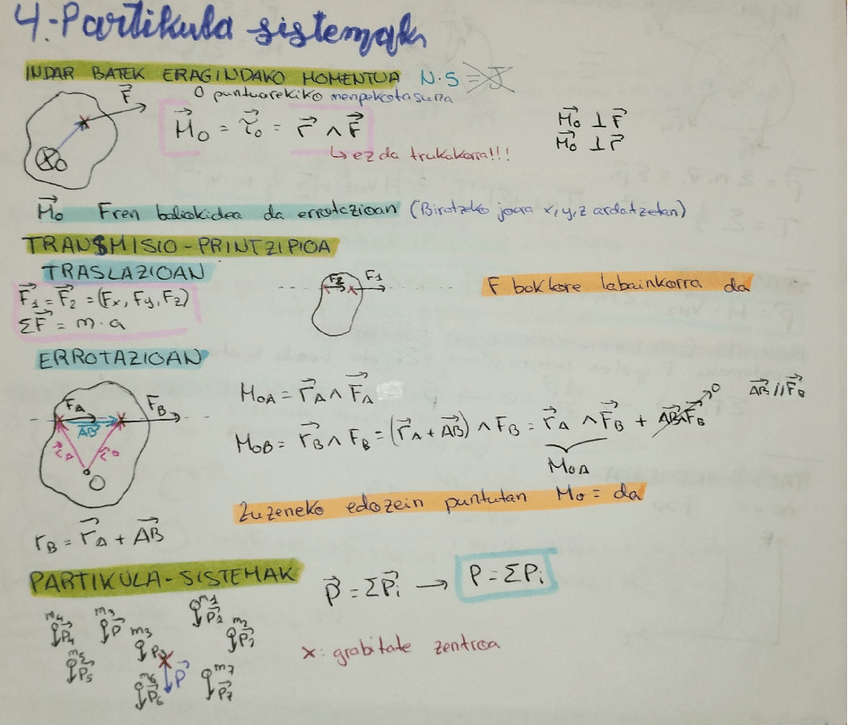 4.-Partikula sistemak
INDAR BATEK ERAGINDAKO MOMENTUA N·S = J
O puntuarekiko menpekotasuna
F⃗
O
M⃗o = τ⃗o = r⃗ ∧ F⃗
M⃗o ⊥ F⃗
M⃗o ⊥ r⃗
↳ ez da trukakorra!!!
M⃗o Fren baliokidea da errotazioan (Biratzeko joera x, y, z ardatzetan)
TRANSMISIO-PRINTZIPIOA
TRASLAZIOAN
F⃗1 = F⃗2 = (Fx, Fy, Fz)
ΣF⃗ = m·a
F2 F1
F bektore labainkorra da
ERROTAZIOAN
FA FB
AB
r⃗A
O
MOA = r⃗A ∧ F⃗A
MOB = r⃗B ∧ FB = (r⃗A + AB⃗) ∧ FB = r⃗A ∧ F⃗B + AB∧F⃗B 0
AB⃗ // F⃗B
MOA
Zuzeneko edozein puntutan Mo = da
rB = r⃗A + AB⃗
PARTIKULA-SISTEMAK
P⃗ = ΣP⃗i → P = ΣPi
m4 m3 m3 m1 m2
P⃗4 P⃗ P3 P⃗1 P⃗2
m5 m6 m7
P⃗5 P⃗6 P⃗ P⃗7
x: grabitate zentroa